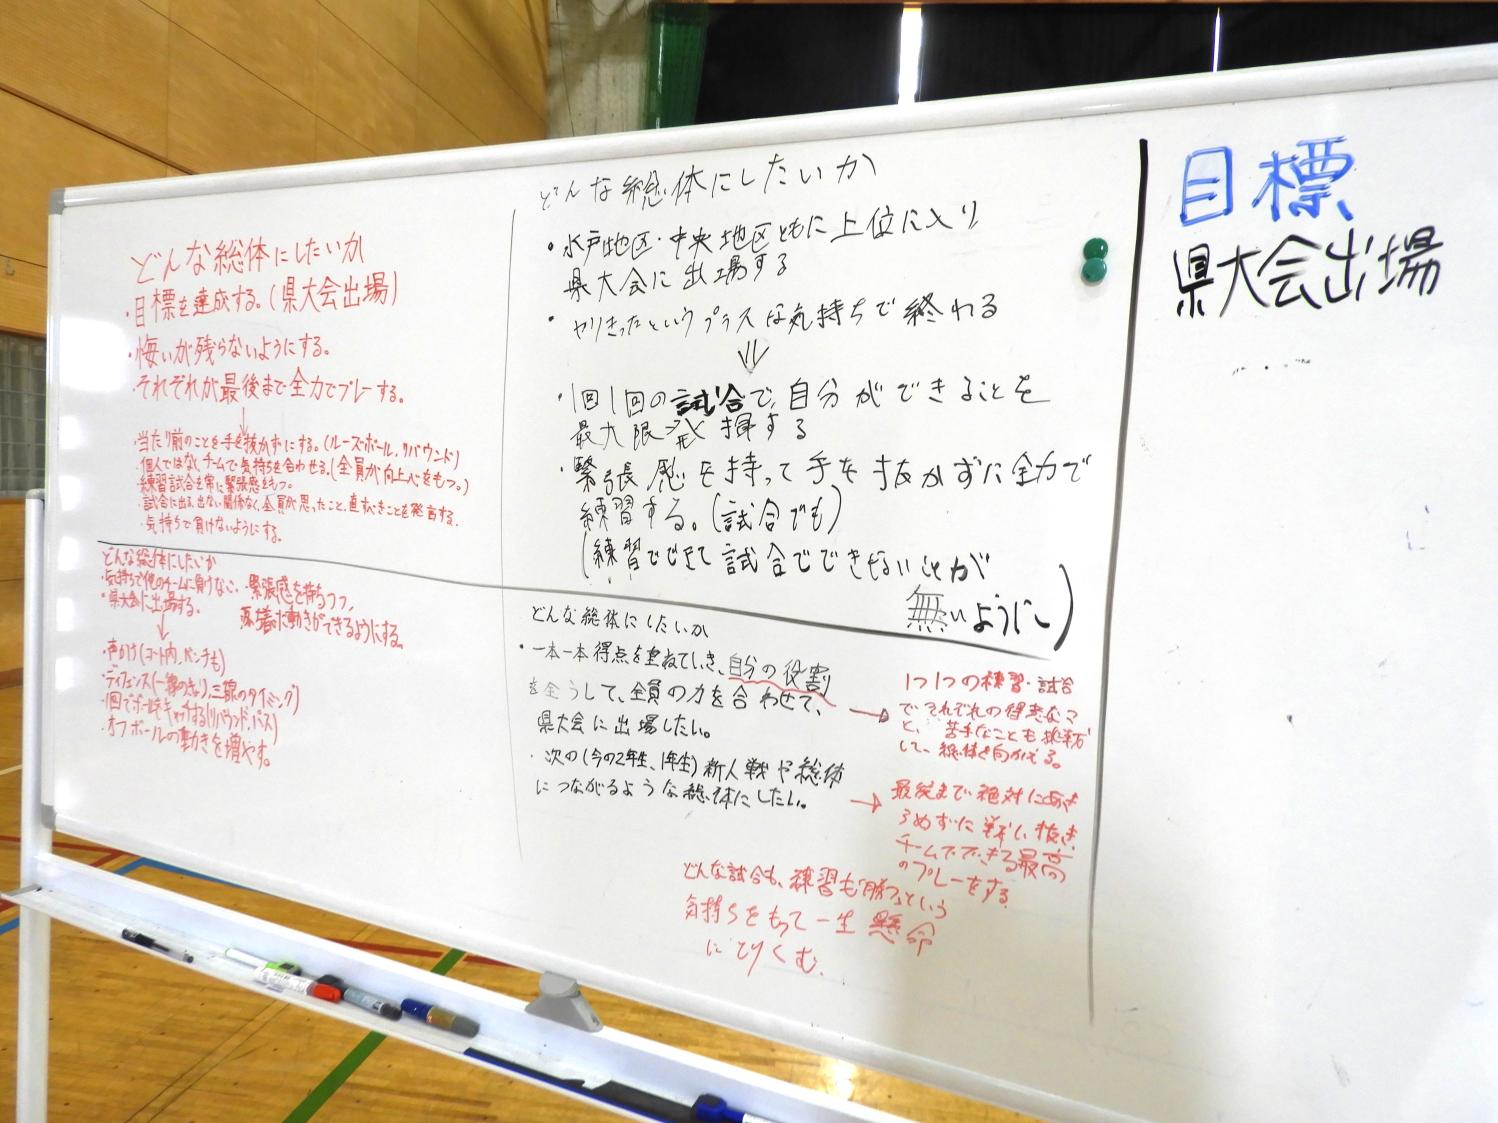 どんな総体にしたいか
・目標を達成する。(県大会出場)
・悔いが残らないようにする。
・それぞれが最後まで全力でプレーする。
↓
・当たり前のことを手を抜かずにする。(ルーズボール、リバウンド)
・個人ではなくチームで気持ちを合わせる。(全員が向上心をもつ。)
・練習試合を常に緊張感をもつ。
・試合に出る、出ない関係なく、全員が思ったこと、直すべきことを発言する。
・気持ちで負けないようにする。
どんな総体にしたいか
・水戸地区・中央地区ともに上位に入り
県大会に出場する
・やりきったというプラスな気持ちで終わる
⇓
・1回1回の試合で、自分ができることを
最大限発揮する
・緊張感を持って手を抜かずに全力で
練習する。(試合でも)
(練習でできて試合でできないことが
無いように)
どんな総体にしたいか
・気持ちで他のチームに負けない。
・県大会に出場する。
・緊張感を持ちつつ、
落ち着いた動きができるようにする。
↓
・声かけ(コート内、ベンチも)
・ディフェンス(一線のきょり、三線のタイミング)
・1回でボールをキャッチする(リバウンド、パス)
・オフボールの動きを増やす。
どんな総体にしたいか
・一本一本得点を重ねていき、自分の役割
を全うして、全員の力を合わせて、
県大会に出場したい。
・次の(今の2年生、1年生)新人戦や総体
につながるような総体にしたい。
→1つ1つの練習・試合
で、それぞれの得意なこ
と、苦手なことも挑戦
して、総体を向かえる。
→最後まで絶対にあき
らめずに戦い抜き、
チームでできる最高
のプレーをする
どんな試合も、練習も「勝つ」という
気持ちをもって一生懸命
にとりくむ。
目標
県大会出場